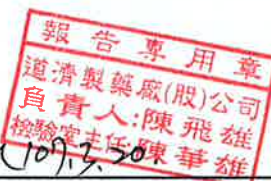 報告專用章
道濟製藥廠(股)公司
負責人:陳飛雄
檢驗室主任:陳華雄
(107.3.20.